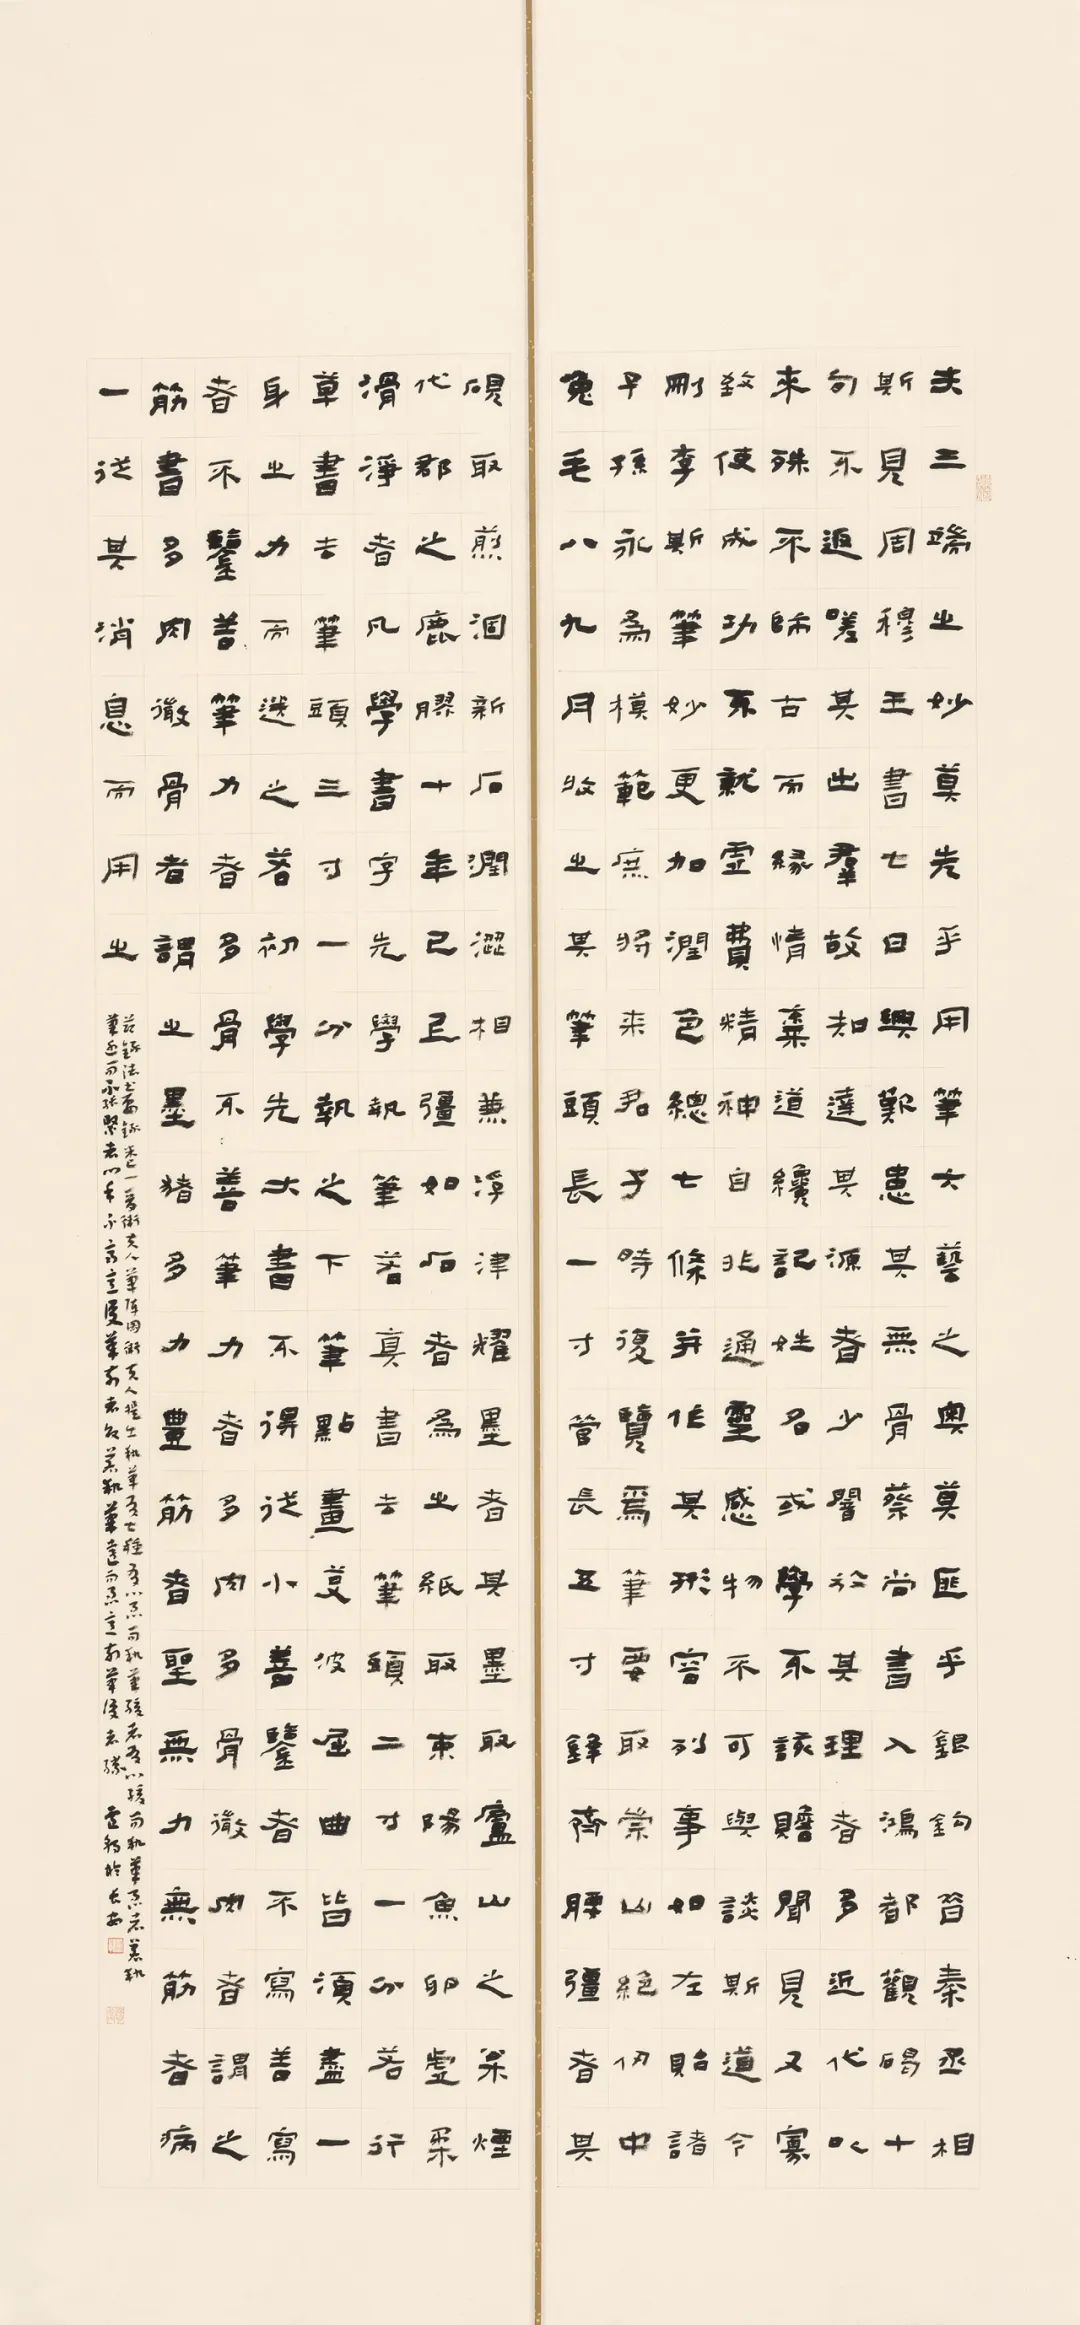 夫三端之妙莫先乎用筆六藝之奧莫匪乎銀鉤昔秦丞相
斯見周穆王書七日興歎患其無骨蔡尚書入鴻都觀碣十
旬不返嗟其出羣故知達其源者少闇於其理者多近代以
來殊不師古而緣情棄道纔記姓名或學不該贍聞見又寡
致使成功不就虛費精神自非通靈感物不可與談斯道今
刪李斯筆妙更加潤色總七條并作其形容列事如左貽諸
子孫永為模範庶將來君子時復覽焉筆要取崇山絕仞中
兔毛八九月收之其筆頭長一寸管長五寸鋒齊腰彊者其
硯取煎涸新石潤澀相兼浮津耀墨者其墨取廬山之松煙
代郡之鹿膠十年已上彊如石者為之紙取東陽魚卵虛柔
滑淨者凡學書字先學執筆若真書去筆頭二寸一分若行
草書去筆頭三寸一分執之下筆點畫芟波屈曲皆須盡一
身之力而送之若初學先大書不得從小善鑒者不寫善寫
者不鑒善筆力者多骨不善筆力者多肉多骨微肉者謂之
筋書多肉微骨者謂之墨豬多力豐筋者聖無力無筋者病
一從其消息而用之
茲錄法書要錄卷一晉衛夫人筆陣圖衛夫人提出執筆有七種有心急而執筆緩者有心緩而執筆急者若執
筆近而不能緊者心手不齊意後筆前者敗若執筆遠而急意前筆後者勝 於長安